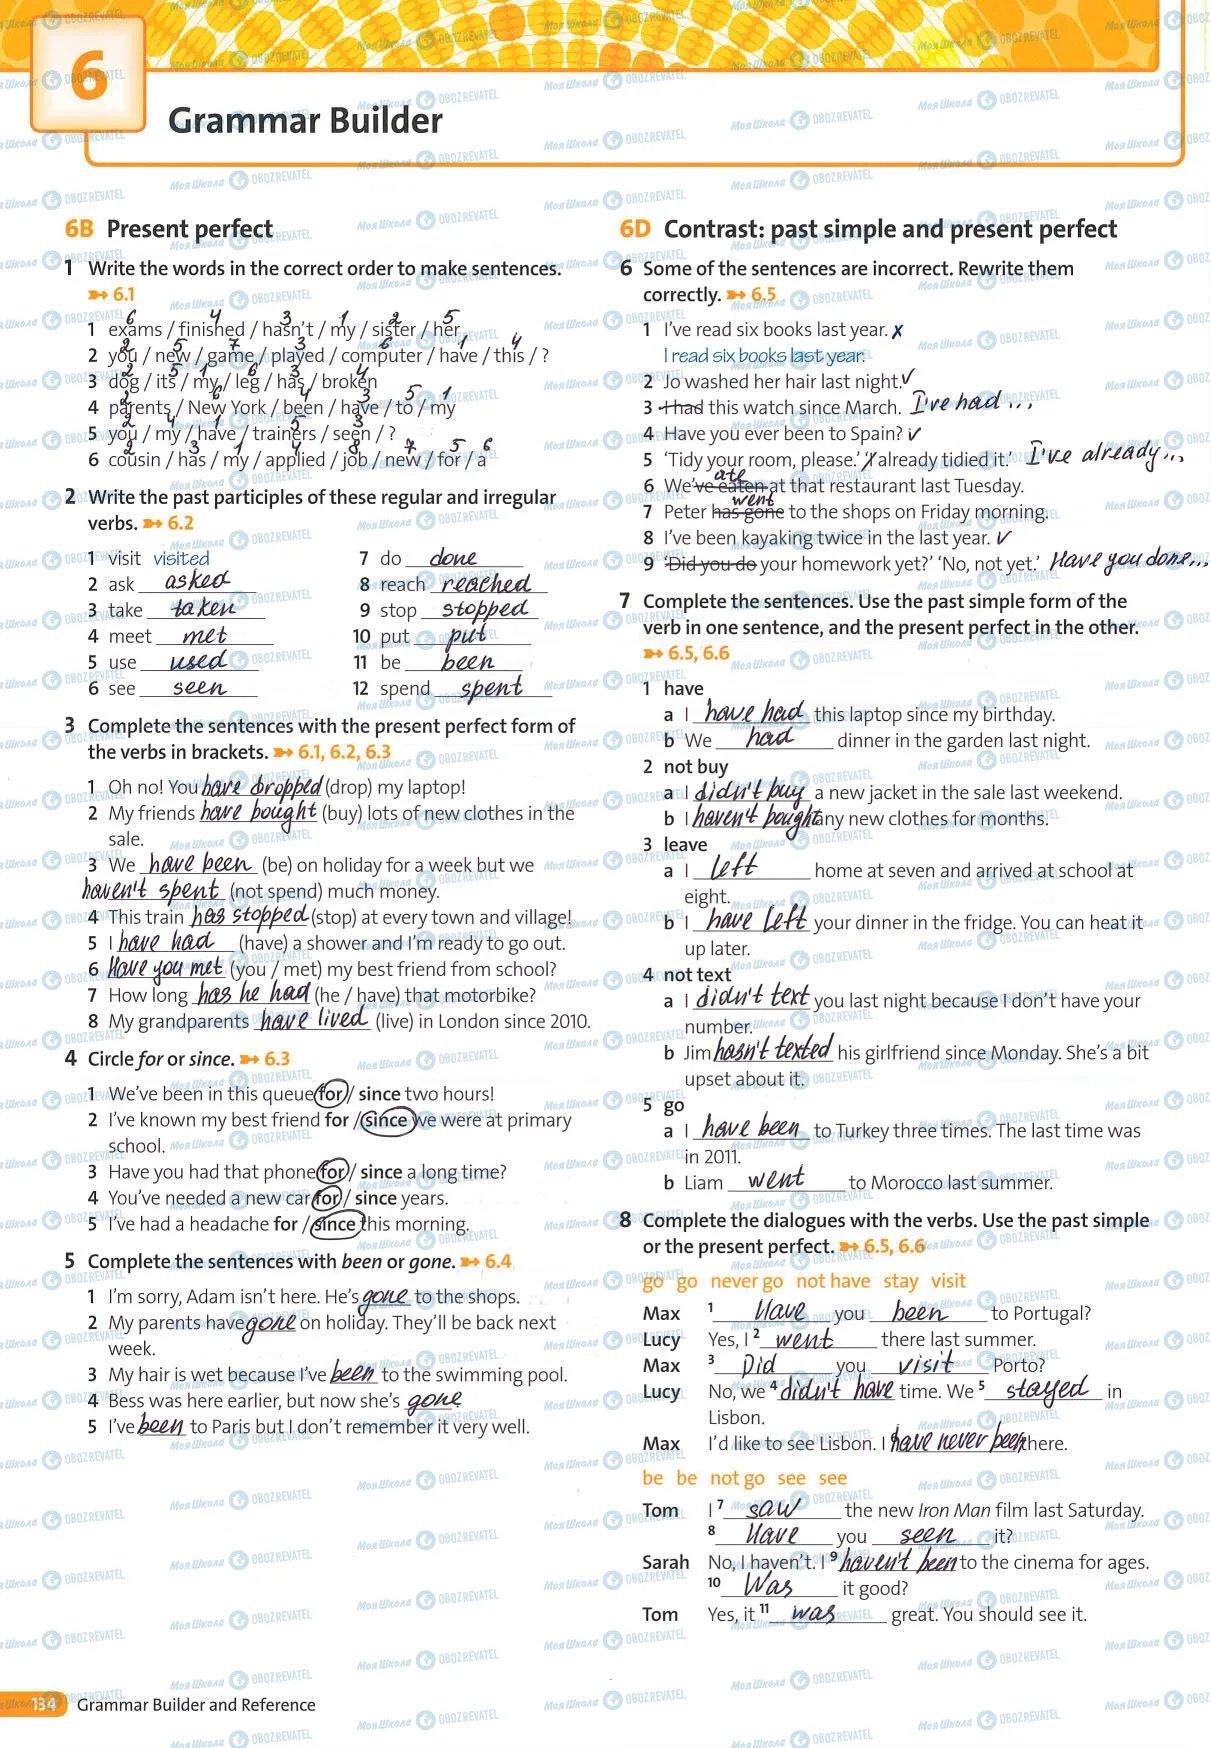 6
Grammar Builder
6B Present perfect
1 Write the words in the correct order to make sentences.
➻ 6.1
6 4 3 1 2 5
1 exams / finished / hasn't / my / sister / her
2 5 7 3 6 1 4
2 you / new / game / played / computer / have / this / ?
2 5 1 6 3 4
3 dog / its / my / leg / has / broken
2 6 4 3 5 1
4 parents / New York / been / have / to / my
2 4 1 5 3
5 you / my / have / trainers / seen / ?
2 3 1 4 8 7 5 6
6 cousin / has / my / applied / job / new / for / a
2 Write the past participles of these regular and irregular
verbs. ➻ 6.2
1 visit visited
2 ask asked
3 take taken
4 meet met
5 use used
6 see seen
7 do done
8 reach reached
9 stop stopped
10 put put
11 be been
12 spend spent
3 Complete the sentences with the present perfect form of
the verbs in brackets. ➻ 6.1, 6.2, 6.3
1 Oh no! You have dropped (drop) my laptop!
2 My friends have bought (buy) lots of new clothes in the
sale.
3 We have been (be) on holiday for a week but we
haven't spent (not spend) much money.
4 This train has stopped (stop) at every town and village!
5 I have had (have) a shower and I'm ready to go out.
6 Have you met (you / met) my best friend from school?
7 How long has he had (he / have) that motorbike?
8 My grandparents have lived (live) in London since 2010.
4 Circle for or since. ➻ 6.3
1 We've been in this queue for / since two hours!
2 I've known my best friend for / since we were at primary
school.
3 Have you had that phone for / since a long time?
4 You've needed a new car for / since years.
5 I've had a headache for / since this morning.
5 Complete the sentences with been or gone. ➻ 6.4
1 I'm sorry, Adam isn't here. He's gone to the shops.
2 My parents have gone on holiday. They'll be back next
week.
3 My hair is wet because I've been to the swimming pool.
4 Bess was here earlier, but now she's gone.
5 I've been to Paris but I don't remember it very well.
6D Contrast: past simple and present perfect
6 Some of the sentences are incorrect. Rewrite them
correctly. ➻ 6.5
1 I've read six books last year. ✗
I read six books last year.
2 Jo washed her hair last night. ✓
3 I had this watch since March. I've had ...
4 Have you ever been to Spain? ✓
5 'Tidy your room, please.' 'I already tidied it.' I've already...
ate
6 We've eaten at that restaurant last Tuesday.
went
7 Peter has gone to the shops on Friday morning.
8 I've been kayaking twice in the last year. ✓
9 'Did you do your homework yet?' 'No, not yet.' Have you done...
7 Complete the sentences. Use the past simple form of the
verb in one sentence, and the present perfect in the other.
➻ 6.5, 6.6
1 have
a I have had this laptop since my birthday.
b We had dinner in the garden last night.
2 not buy
a I didn't buy a new jacket in the sale last weekend.
b I haven't bought any new clothes for months.
3 leave
a I left home at seven and arrived at school at
eight.
b I have left your dinner in the fridge. You can heat it
up later.
4 not text
a I didn't text you last night because I don't have your
number.
b Jim hasn't texted his girlfriend since Monday. She's a bit
upset about it.
5 go
a I have been to Turkey three times. The last time was
in 2011.
b Liam went to Morocco last summer.
8 Complete the dialogues with the verbs. Use the past simple
or the present perfect. ➻ 6.5, 6.6
go go never go not have stay visit
Max 1 Have you been to Portugal?
Lucy Yes, I 2 went there last summer.
Max 3 Did you visit Porto?
Lucy No, we 4 didn't have time. We 5 stayed in
Lisbon.
Max I'd like to see Lisbon. I have never been there.
be be not go see see
Tom I 7 saw the new Iron Man film last Saturday.
8 Have you seen it?
Sarah No, I haven't. I 9 haven't been to the cinema for ages.
10 Was it good?
Tom Yes, it 11 was great. You should see it.
134 Grammar Builder and Reference
Моя Школа OBOZREVATEL